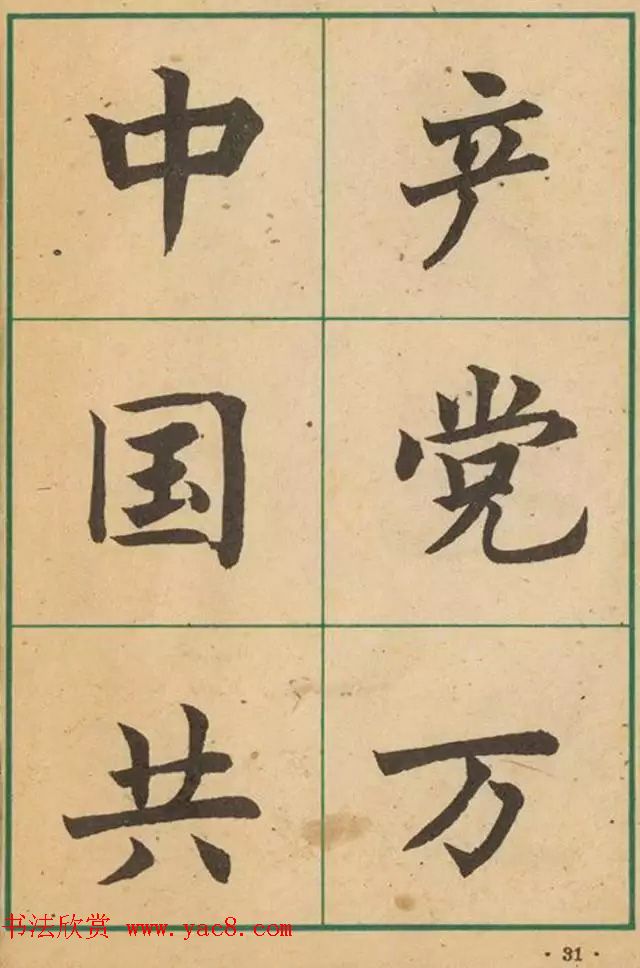 中
国
共
产
党
万
书法欣赏 www.yac8.com
· 31 ·